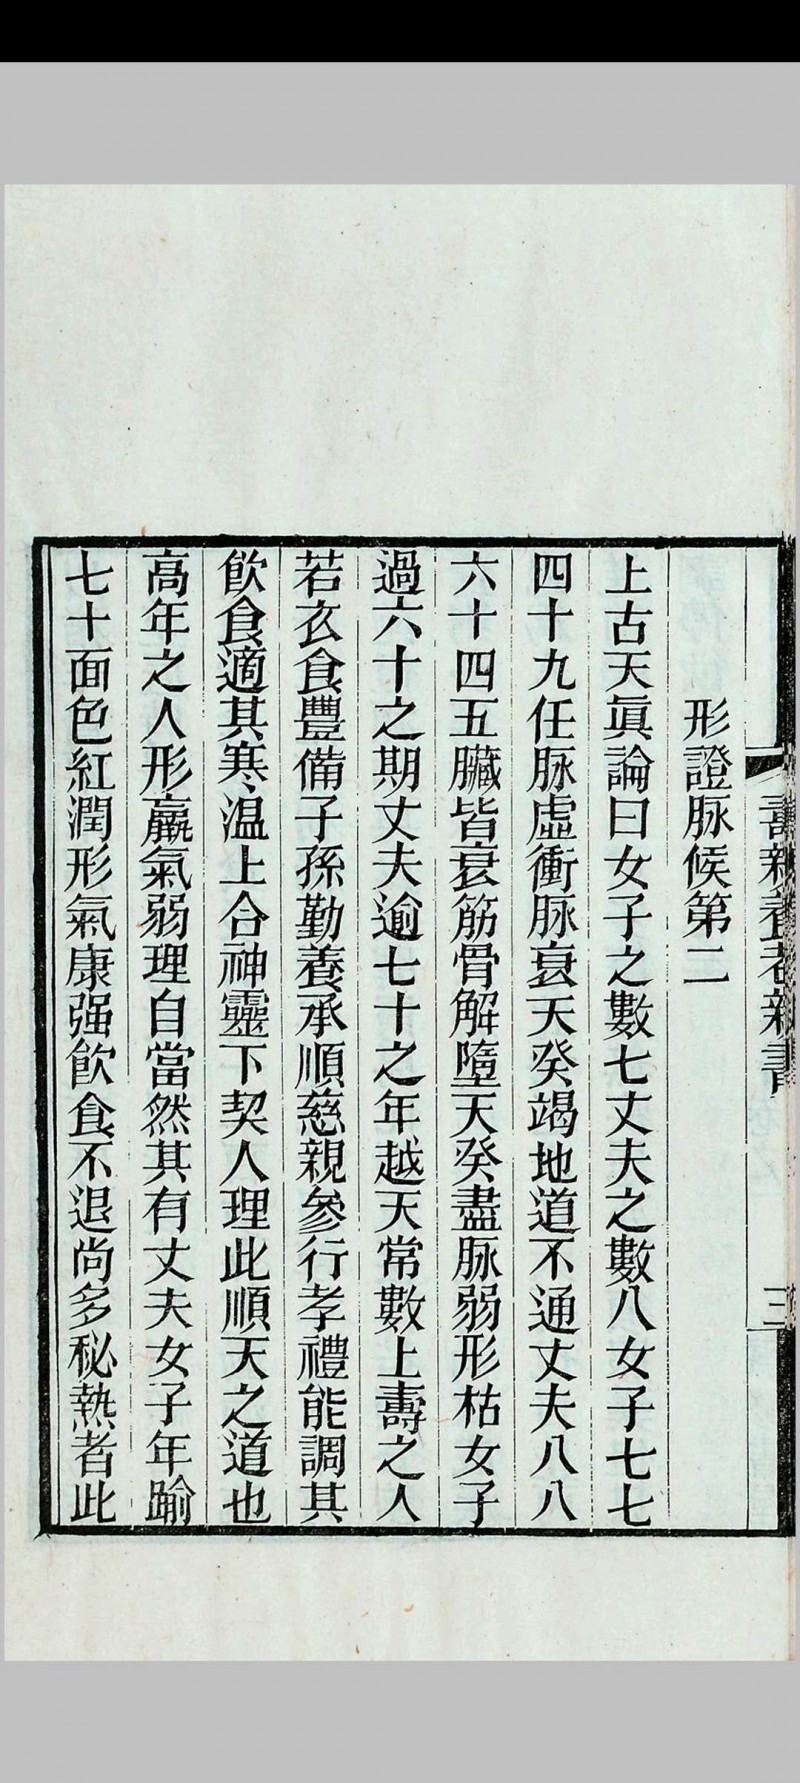 壽親養老新書
三
形證脉候第二
上古天眞論曰女子之數七丈夫之數八女子七七
四十九任脉虛衝脉衰天癸竭地道不通丈夫八八
六十四五臟皆衰筋骨解墮天癸盡脉弱形枯女子
過六十之期丈夫逾七十之年越天常數上壽之人
若衣食豐備子孫勤養承順慈親參行孝禮能調其
飲食適其寒温上合神靈下契人理此順天之道也
高年之人形羸氣弱理自當然其有丈夫女子年踰
七十面色紅潤形氣康强飲食不退尚多秘熱者此